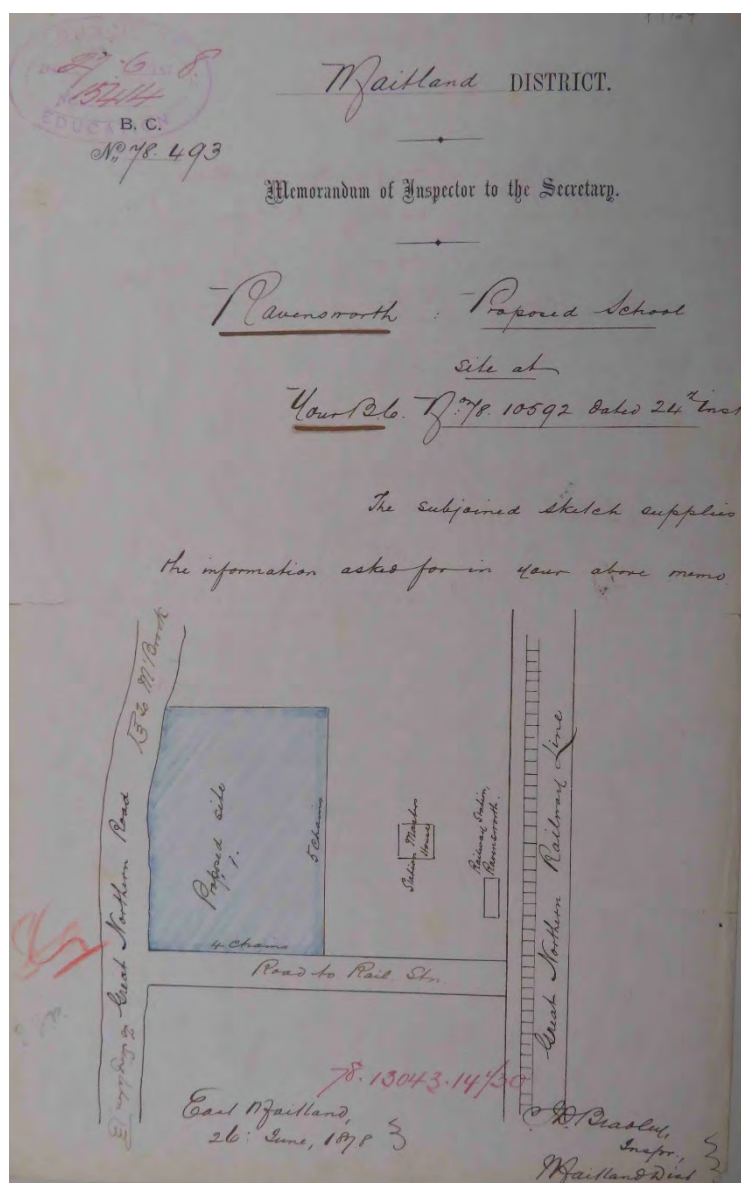 27.6.8
15414
EDUCATION
B. C.
No. 78.493
Maitland DISTRICT.
Memorandum of Inspector to the Secretary.
Ravensworth : Proposed School
site at
Your B.C. No. 78.10592 dated 24th Inst
The subjoined sketch supplies
the information asked for in your above memo
To McBrook
Great Northern Road
to Singleton
Proposed site
5 Chains
4 Chains
Station Master
House
Railway Station,
Ravensworth.
Great Northern Railroad Line
Road to Rail. Stn.
78.13043.14/30
East Maitland,
26: June, 1878
Inspr.,
Maitland Dist